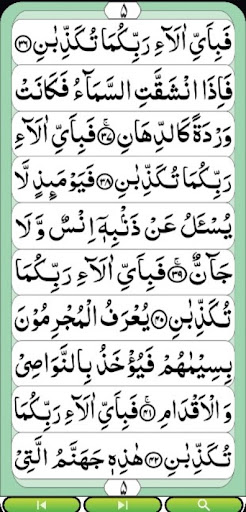 ۵
فَبِاَيِّ اٰلَآءِ رَبِّكُمَا تُكَذِّبٰنِ ﴿۳۶﴾
فَاِذَا انْشَقَّتِ السَّمَآءُ فَكَانَتْ
وَرْدَةً كَالدِّهَانِ ﴿۳۷﴾ فَبِاَيِّ اٰلَآءِ
رَبِّكُمَا تُكَذِّبٰنِ ﴿۳۸﴾ فَيَوْمَئِذٍ لَّا
يُسْـَٔلُ عَنْ ذَنْۢبِهٖۤ اِنْسٌ وَّلَا
جَآنٌّ ﴿۳۹﴾ فَبِاَيِّ اٰلَآءِ رَبِّكُمَا
تُكَذِّبٰنِ ﴿۴۰﴾ يُعْرَفُ الْمُجْرِمُوْنَ
بِسِيْمٰهُمْ فَيُؤْخَذُ بِالنَّوَاصِيْ
وَالْاَقْدَامِ ﴿۴۱﴾ فَبِاَيِّ اٰلَآءِ رَبِّكُمَا
تُكَذِّبٰنِ ﴿۴۲﴾ هٰذِهٖ جَهَنَّمُ الَّتِيْ
۵